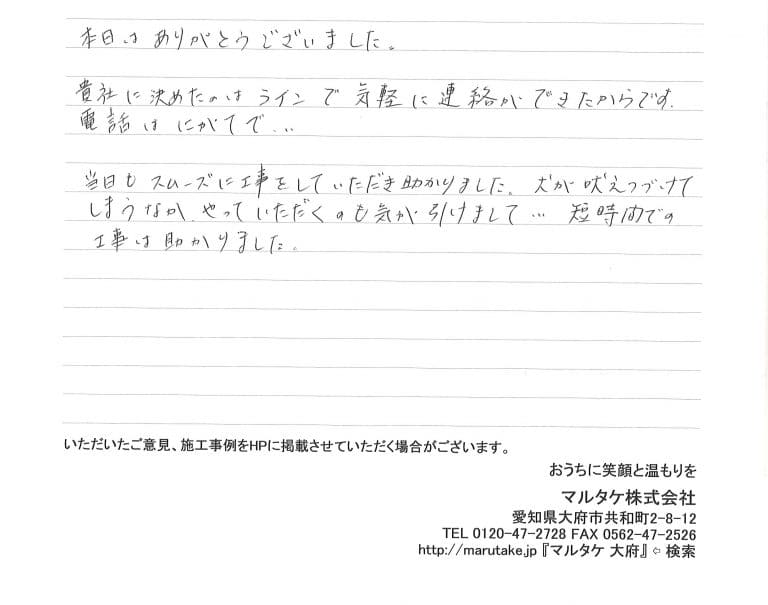 本日は ありがとうございました。
貴社に決めたのは ラインで 気軽に 連絡が できたからです。
電話は にがてで...
当日も スムーズに工事をしていただき助かりました。 犬が吠えつづけて
しまうなか、やっていただくのも気が引けまして... 短時間での
工事は助かりました。
いただいたご意見、施工事例をHPに掲載させていただく場合がございます。
おうちに笑顔と温もりを
マルタケ株式会社
愛知県大府市共和町2-8-12
TEL 0120-47-2728 FAX 0562-47-2526
http://marutake.jp『マルタケ 大府』⇦ 検索